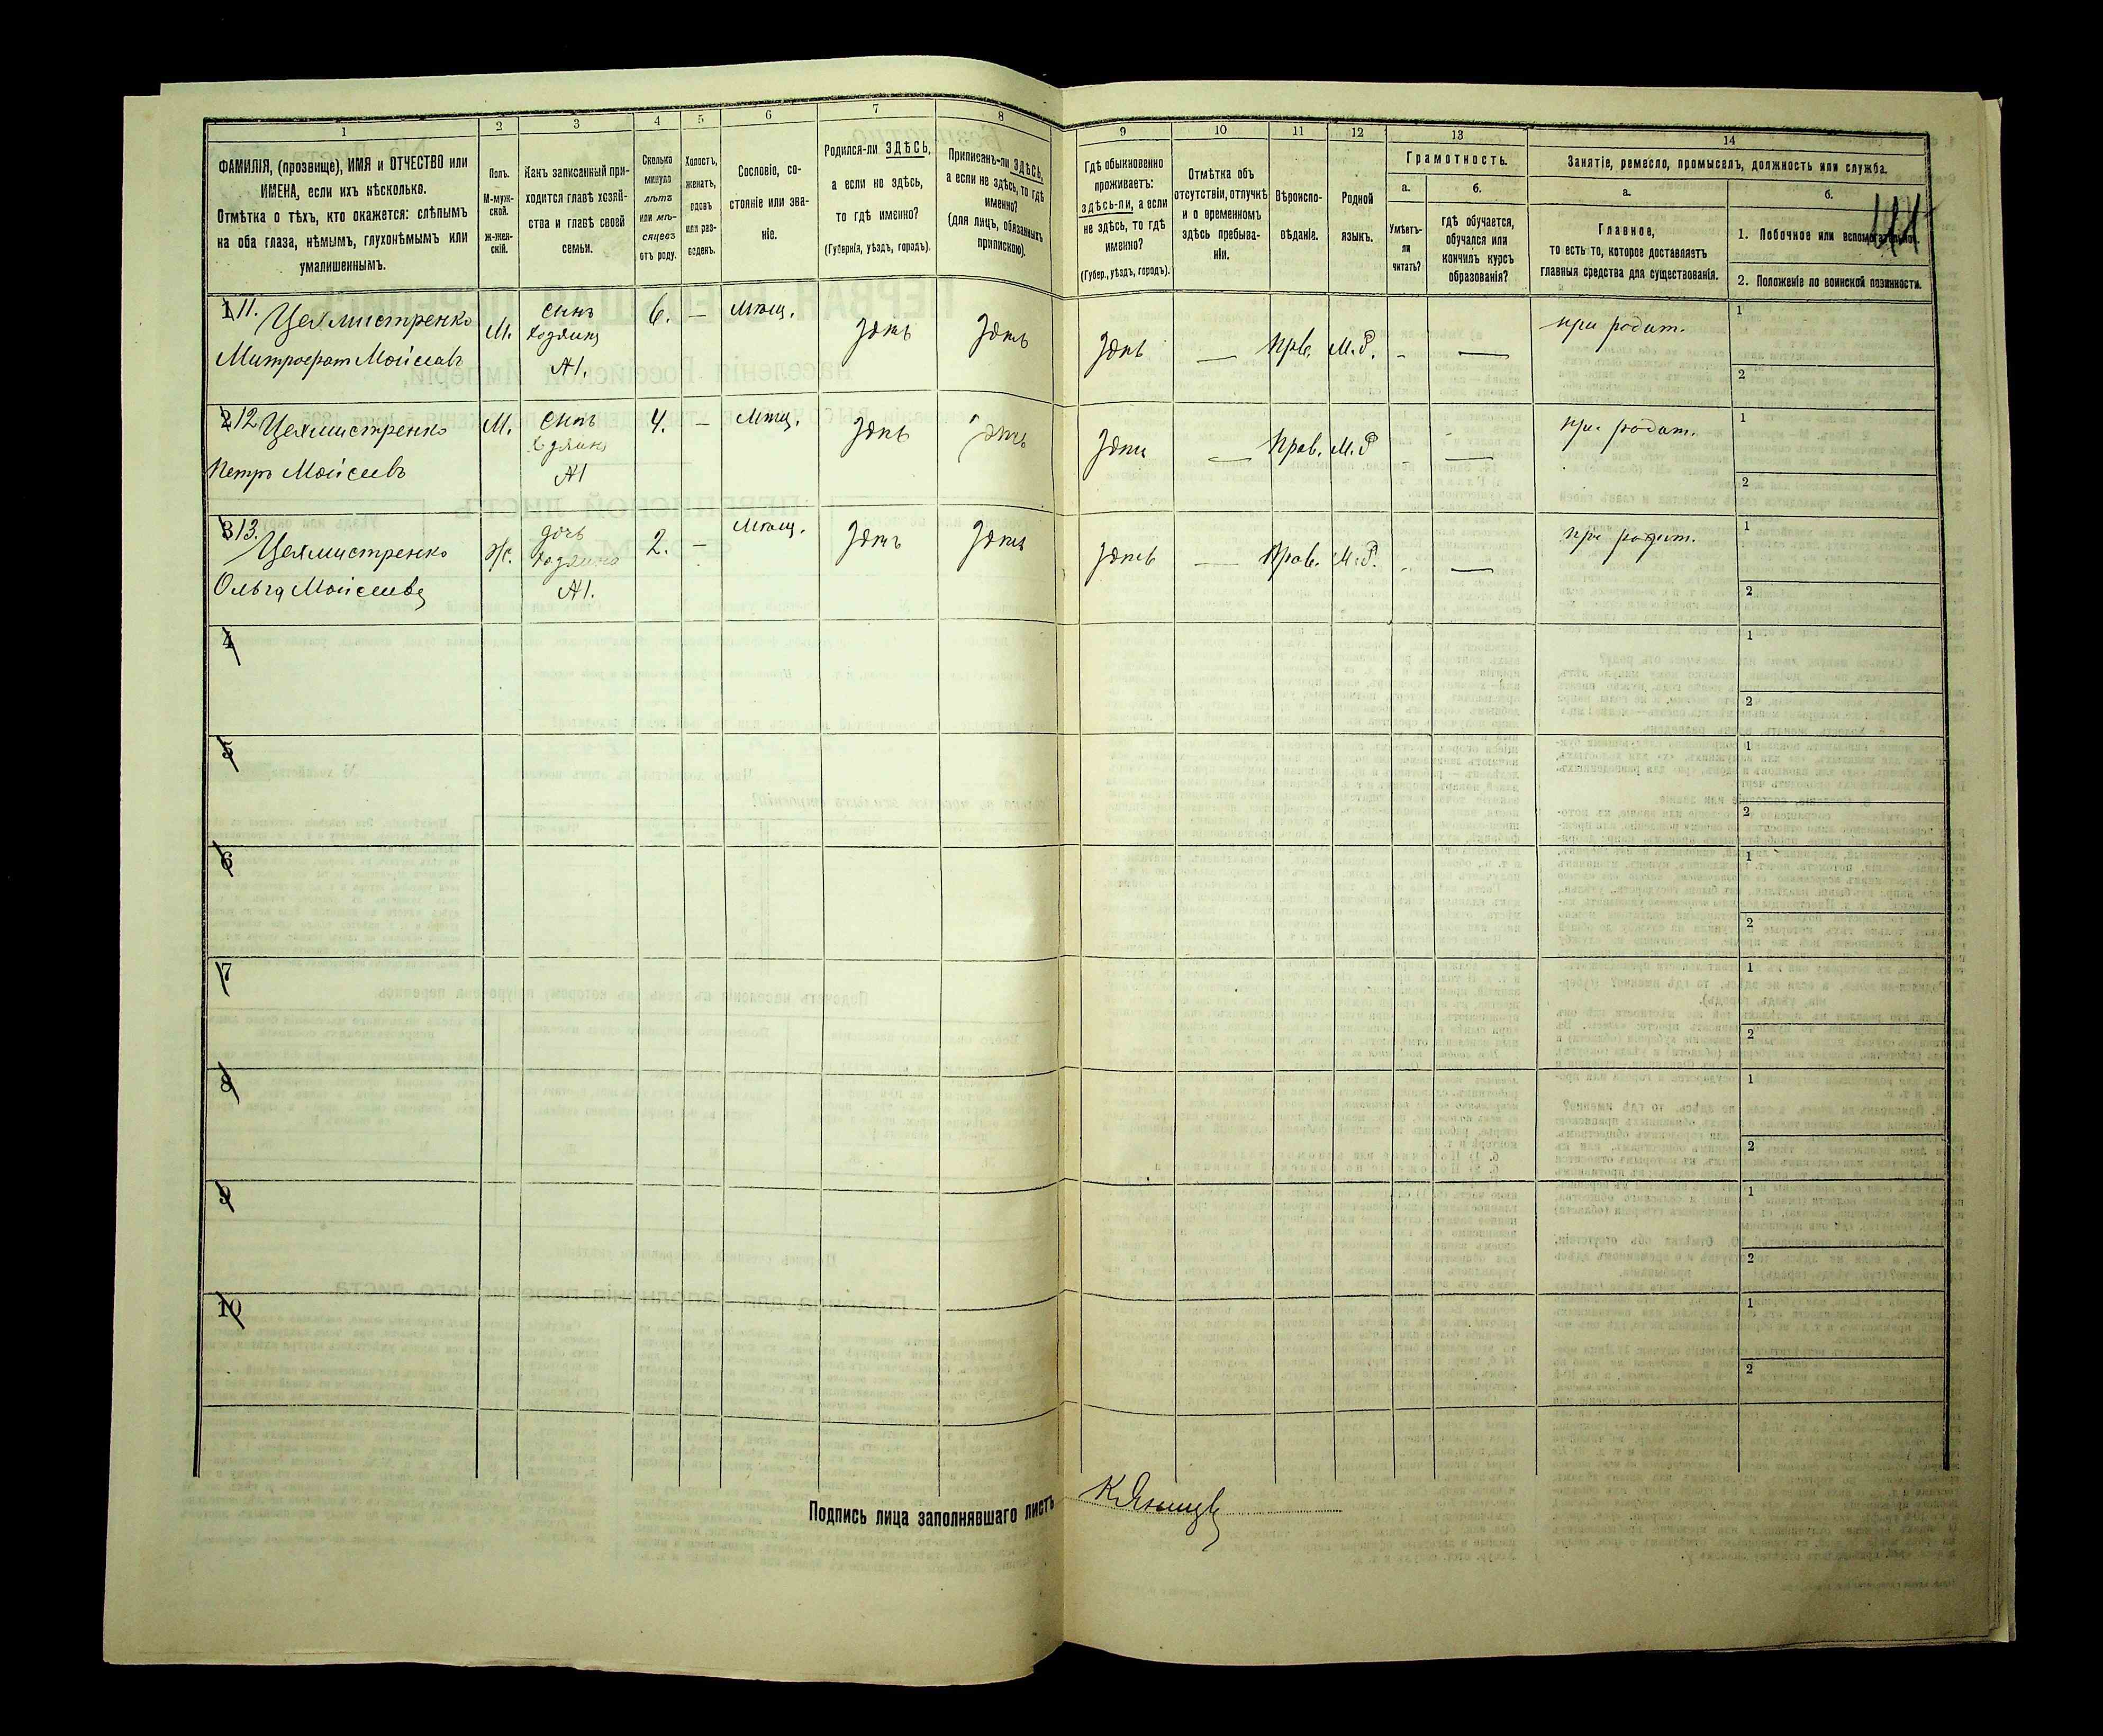 1
ФАМИЛІЯ, (прозвище), ИМЯ и ОТЧЕСТВО или
ИМЕНА, если ихъ нѣсколько.
Отмѣтка о тѣхъ, кто окажется: слѣпымъ
на оба глаза, нѣмымъ, глухонѣмымъ или
умалишеннымъ.
2
Полъ.
М-муж-
ской.
Ж-жен-
скій.
3
Какъ записанный при-
ходится главѣ хозяй-
ства и главѣ своей
семьи.
4
Сколько
минуло
лѣтъ
или мѣ-
сяцевъ
отъ роду.
5
Холостъ,
женатъ,
вдовъ
или раз-
веденъ.
6
Сословіе, со-
стояніе или зва-
ніе.
7
Родился-ли ЗДѢСЬ,
а если не здѣсь,
то гдѣ именно?
(Губернія, уѣздъ, городъ).
8
Приписанъ-ли ЗДѢСЬ,
а если не здѣсь, то гдѣ
именно?
(для лицъ, обязанныхъ
припискою).
9
Гдѣ обыкновенно
проживаетъ:
здѣсь-ли, а если
не здѣсь, то гдѣ
именно?
(Губер., уѣздъ, городъ).
10
Отмѣтка объ
отсутствіи, отлучкѣ
и о временномъ
здѣсь пребыва-
ніи.
11
Вѣроиспо-
вѣданіе.
12
Родной
языкъ.
13
Грамотность.
а.
Умѣетъ-
ли
читать?
б.
гдѣ обучается,
обучался или
кончилъ курсъ
образованія?
14
Занятіе, ремесло, промыселъ, должность или служба.
а.
Главное,
то есть то, которое доставляетъ
главныя средства для существованія.
б.
1. Побочное или вспомогательное.
2. Положеніе по воинской повинности.
1 11. Цехмистренко
Митрофанъ Моисеевъ
М.
сынъ
хозяина
№1.
6.
—
Мѣщ.
здѣсь
здѣсь
здѣсь
—
Прв.
М.Р.
-
—
при родит.
1
2
2 12 Цехмистренко
Петръ Моисеевъ
М.
сынъ
хозяина
№1
4.
—
Мѣщ.
здѣсь
здѣсь
здѣсь
—
Прав.
М.Р
-
—
при родит.
1
2
3 13. Цехмистренко
Ольга Моисеева
Ж.
дочь
хозяина
№1.
2.
—
Мѣщ.
здѣсь
здѣсь
здѣсь
—
Прав.
М.Р.
-
—
при родит.
1
2
4
1
2
5
1
2
6
1
2
7
1
2
8
1
2
9
1
2
10
1
2
Подпись лица заполнявшаго листъ